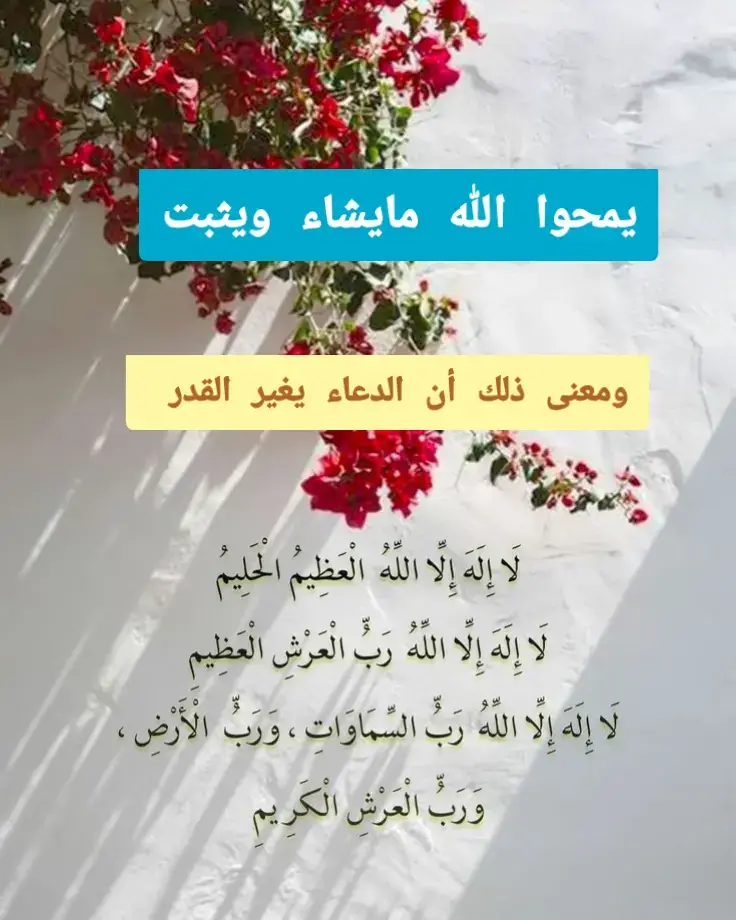 يمحوا الله مايشاء ويثبت
ومعنى ذلك أن الدعاء يغير القدر
لَا إِلَهَ إِلَّا اللَّهُ الْعَظِيمُ الْحَلِيمُ
لَا إِلَهَ إِلَّا اللَّهُ رَبُّ الْعَرْشِ الْعَظِيمِ
لَا إِلَهَ إِلَّا اللَّهُ رَبُّ السَّمَاوَاتِ ، وَرَبُّ الْأَرْضِ ،
وَرَبُّ الْعَرْشِ الْكَرِيمِ